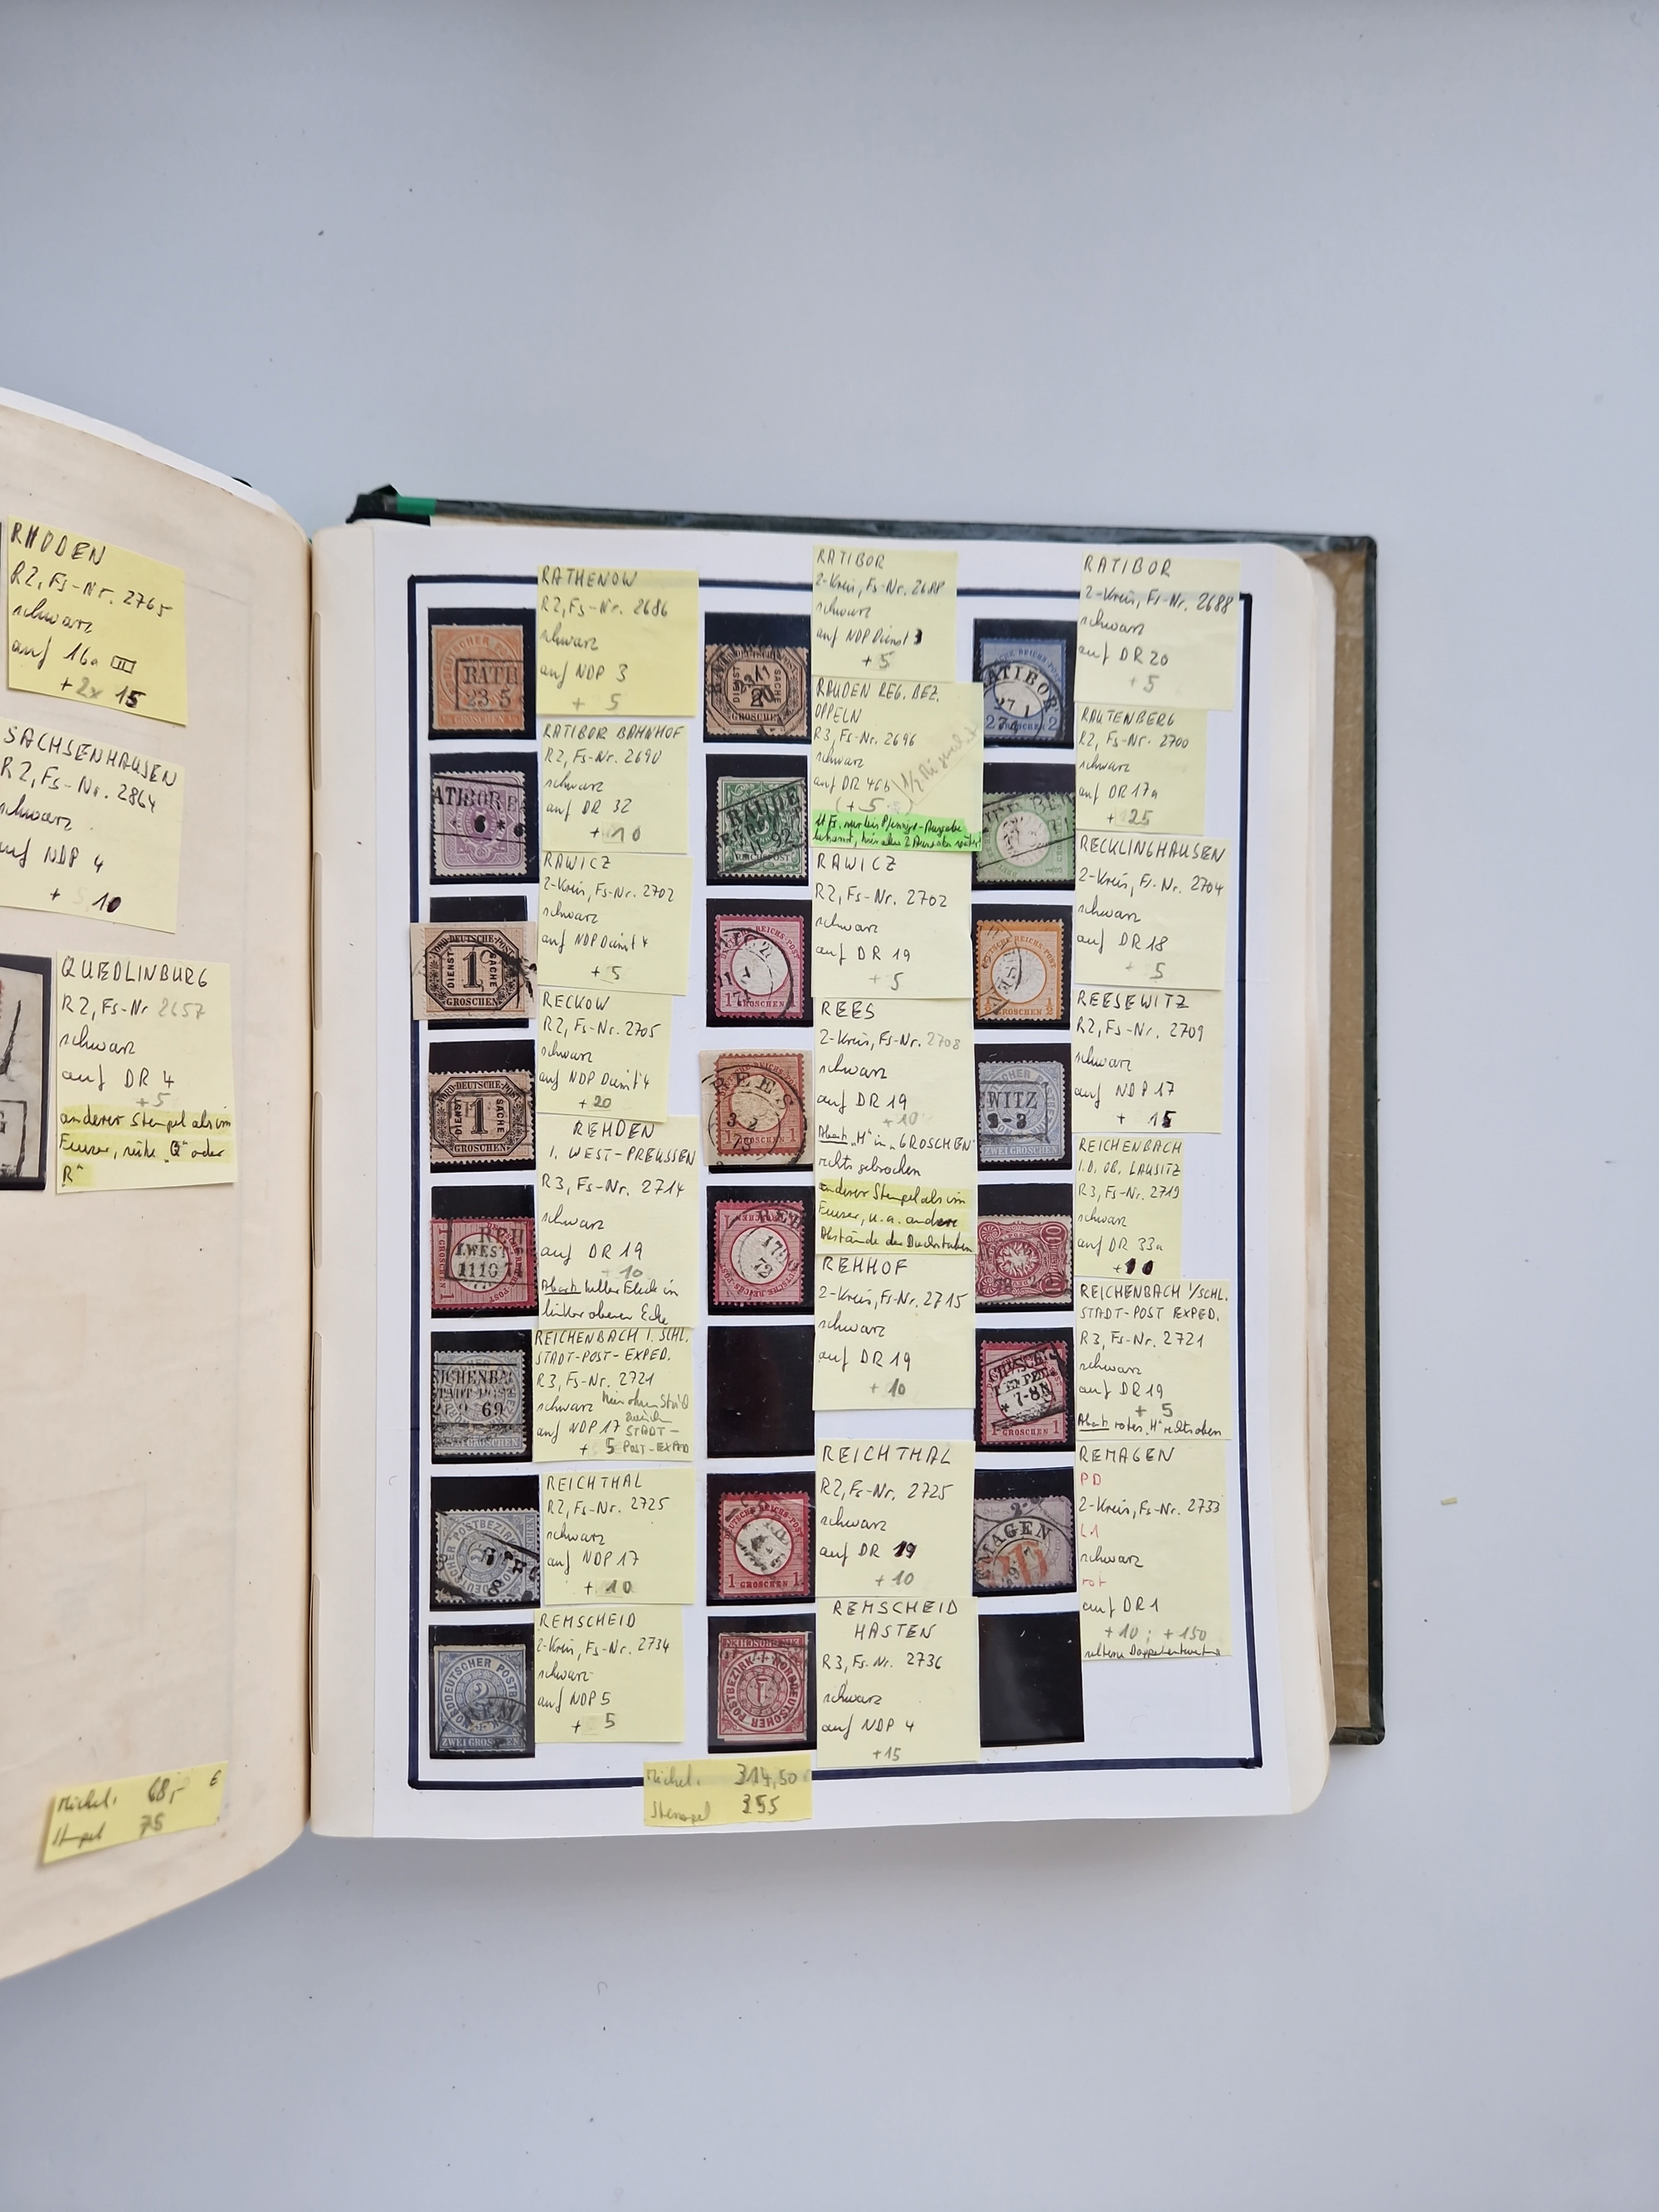 RHODEN
R2, Fs-Nr. 2765
schwarz
auf 16a III
+ 2x 15
SACHSENHAUSEN
R2, Fs-Nr. 2864
schwarz
auf NDP 4
+ 10
QUEDLINBURG
R2, Fs-Nr 2657
schwarz
auf DR 4
+5
anderer Stempel als im
Feuser, siehe „Q" oder
R"
Michel: 68,- €
Stempel 75
RATHENOW
R2, Fs-Nr. 2686
schwarz
auf NDP 3
+ 5
RATH
23 5
RATIBOR
2-Kreis, Fs-Nr. 2688
schwarz
auf NDP Dienst 3
+ 5
DIENST
SACHE
GROSCHEN
RATIBOR
2-Kreis, Fs-Nr. 2688
schwarz
auf DR 20
+ 5
ATIBOR
27 1
RATIBOR BAHNHOF
R2, Fs-Nr. 2690
schwarz
auf DR 32
+ 10
ATIBOR B
RAUDEN REG. BEZ.
OPPELN
R3, Fs-Nr. 2696
schwarz
auf DR 46b
(+ 5
lt Fs. nur bis Pfennige-Ausgabe
bekannt, hier also 2 Ausgaben später!
RAUDE
11 92
REICHSPOST
RAUTENBERG
R2, Fs-Nr. 2700
schwarz
auf DR 17a
+ 25
RAWICZ
2-Kreis, Fs-Nr. 2702
schwarz
auf NDP Dienst 4
+ 5
NORD-DEUTSCHE-POST
DIENST
1
SACHE
GROSCHEN
RAWICZ
R2, Fs-Nr. 2702
schwarz
auf DR 19
+ 5
GROSCHEN
RECKLINGHAUSEN
2-Kreis, Fs-Nr. 2704
schwarz
auf DR 18
+ 5
GROSCHEN
RECKOW
R2, Fs-Nr. 2705
schwarz
auf NDP Dienst 4
+ 20
NORD-DEUTSCHE-POST
DIENST
1
SACHE
GROSCHEN
REES
2-Kreis, Fs-Nr. 2708
schwarz
auf DR 19
+10
Abart „H" in „GROSCHEN"
rechts gebrochen
anderer Stempel als im
Feuser, u. a. andere
Abstände der Buchstaben
REES
REESEWITZ
R2, Fs-Nr. 2709
schwarz
auf NDP 17
+ 15
WITZ
ZWEI GROSCHEN
REHDEN
I. WEST-PREUSSEN
R3, Fs-Nr. 2714
schwarz
auf DR 19
+ 10
Abart heller Fleck in
linker oberer Ecke
REH
I.WEST
1110 74
REHHOF
2-Kreis, Fs-Nr. 2715
schwarz
auf DR 19
+ 10
REICHENBACH
I.D. OB. LAUSITZ
R3, Fs-Nr. 2719
schwarz
auf DR 33a
+10
REICHENBACH I. SCHL.
STADT-POST-EXPED.
R3, Fs-Nr. 2721
schwarz
auf NDP 17
+ 5
hier ohne Strich
zwischen
STADT-
POST-EXPED
ICHENBA
TADT-POST
69
GROSCHEN
REICHENBACH I/SCHL.
STADT-POST EXPED.
R3, Fs-Nr. 2721
schwarz
auf DR 19
+ 5
Abart rotes „H" rechts oben
7-8N
1 GROSCHEN 1
REICHTHAL
R2, Fs-Nr. 2725
schwarz
auf NDP 17
+ 10
REICHTHAL
R2, Fs-Nr. 2725
schwarz
auf DR 19
+ 10
1 GROSCHEN 1
REMAGEN
PD
2-Kreis, Fs-Nr. 2733
L1
schwarz
rot
auf DR 1
+ 10 ; + 150
seltene Doppelentwertung
MAGEN
REMSCHEID
2-Kreis, Fs-Nr. 2734
schwarz
auf NDP 5
+ 5
NORDDEUTSCHER POSTB
REM
ZWEI GROSCHEN
REMSCHEID
HASTEN
R3, Fs-Nr. 2736
schwarz
auf NDP 4
+15
NORDDEUTSCHER POSTBEZIRK
Michel: 314,50
Stempel 355